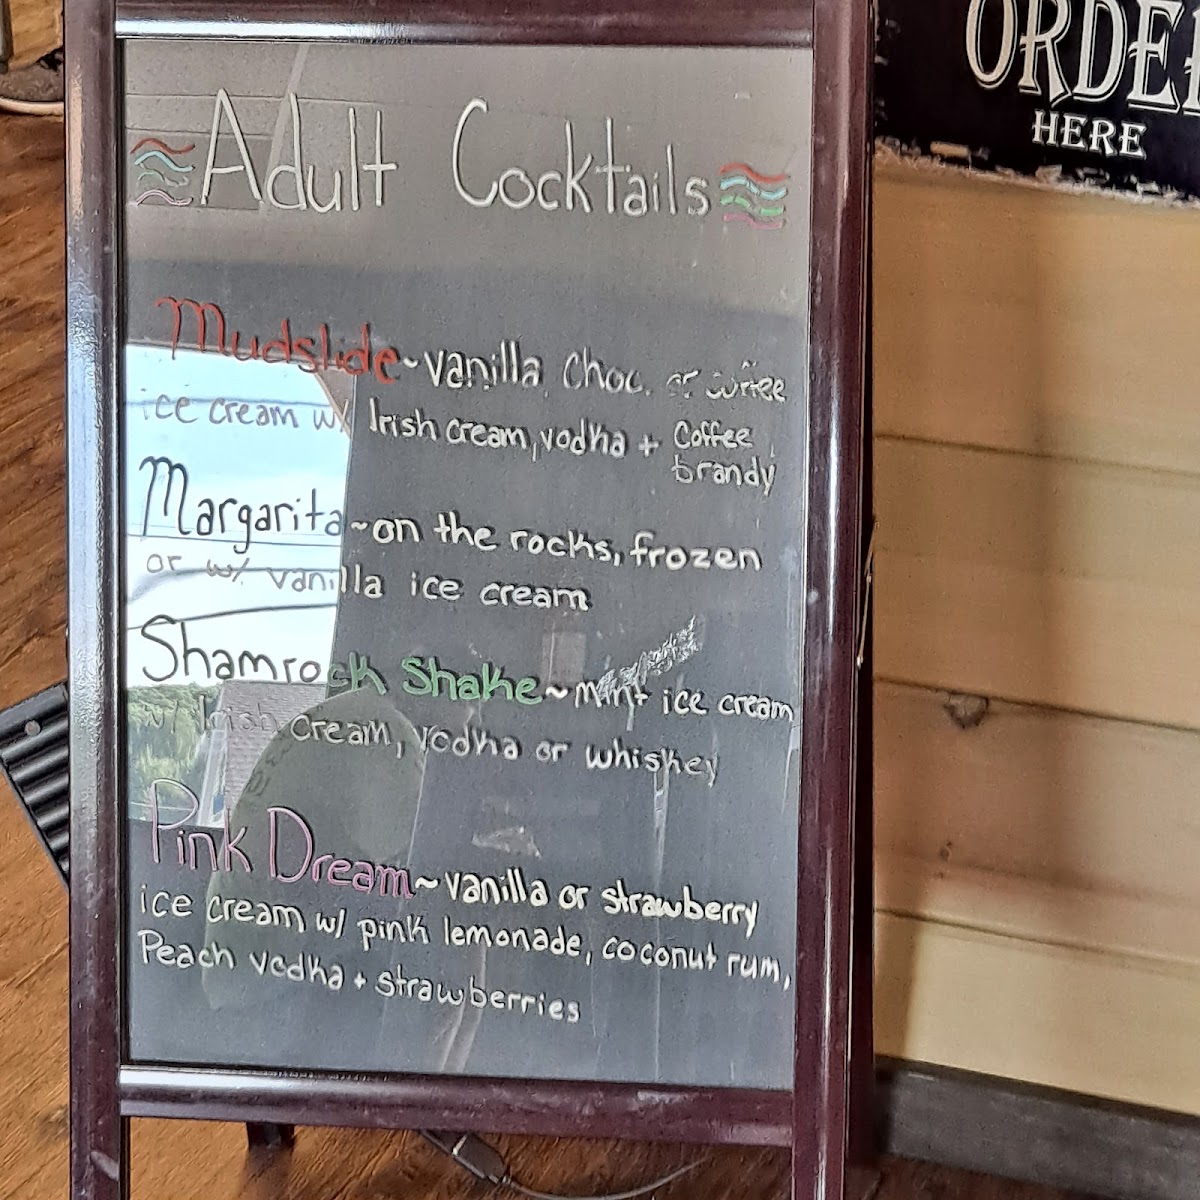 ORDE
HERE
Adult Cocktails
Mudslide~vanilla, Choc. or coffee
ice cream w/ Irish cream, vodka + Coffee
brandy
Margarita~on the rocks, frozen
or w/ vanilla ice cream
Shamrock Shake~mint ice cream
w/ Irish Cream, vodka or whiskey
Pink Dream~vanilla or strawberry
ice cream w/ pink lemonade, coconut rum,
Peach vodka + strawberries